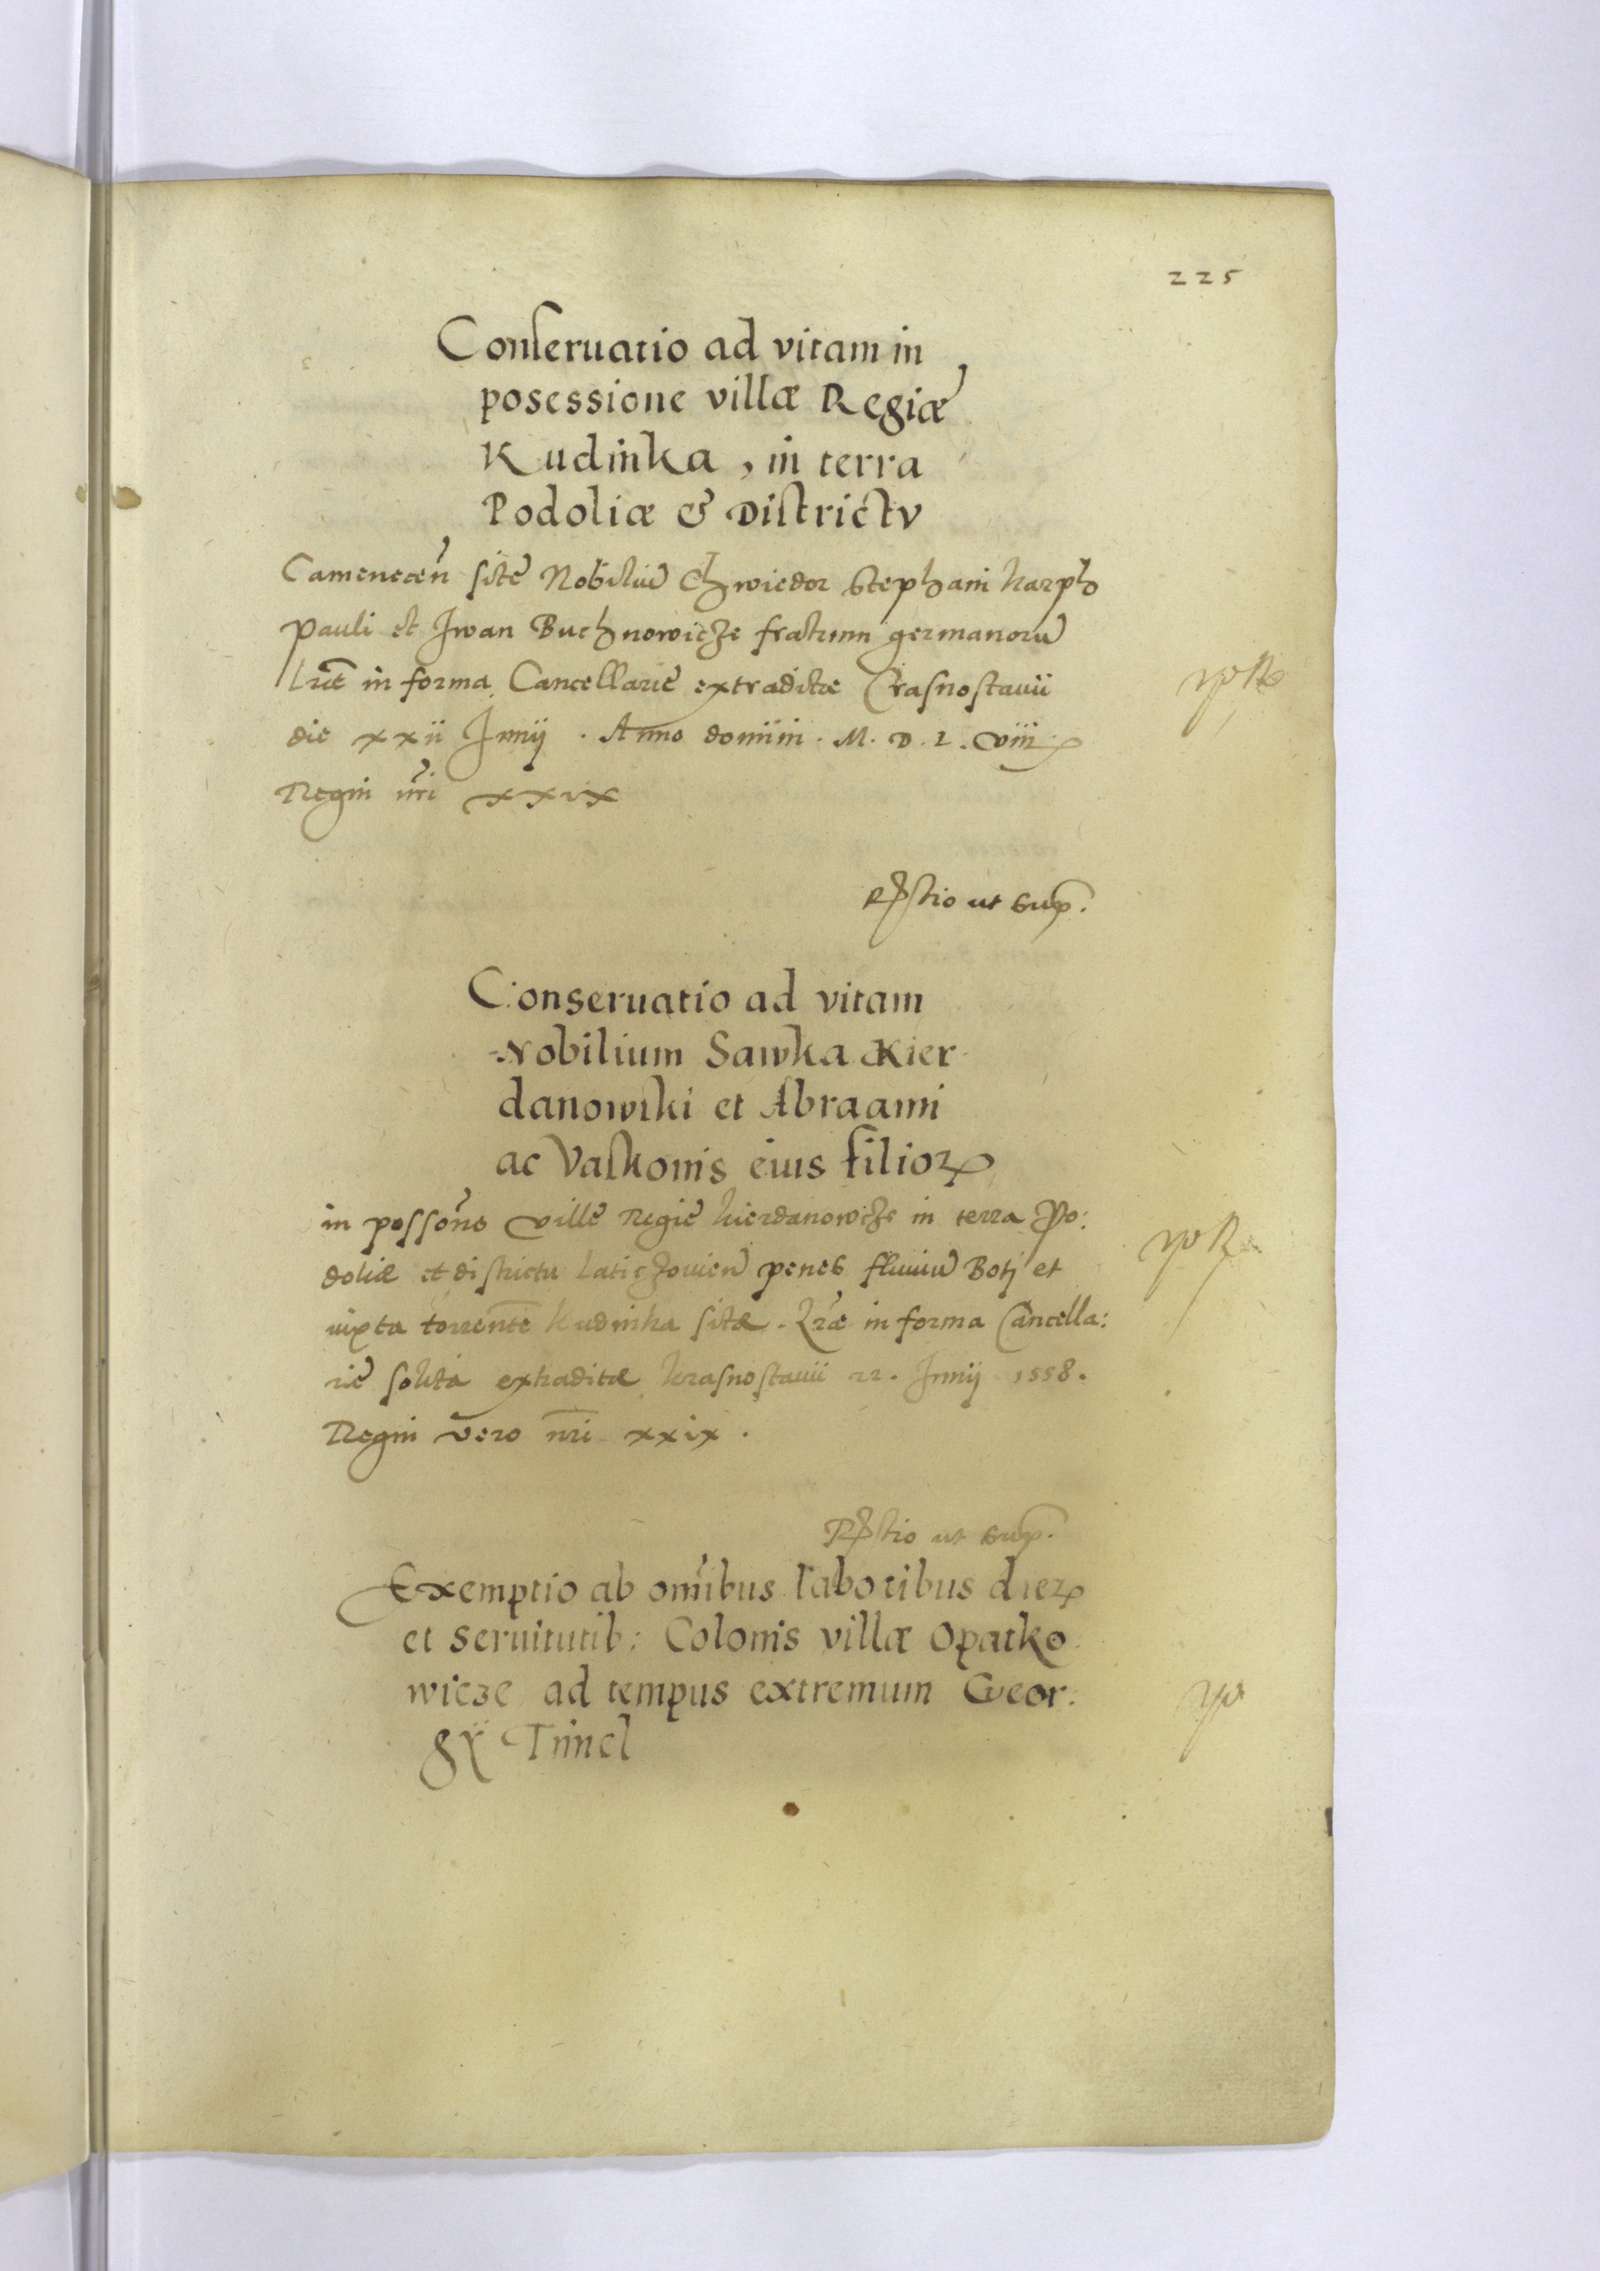 225
Conseruatio ad vitam in
posessione villæ Regiæ
Kudinka, in terra
Podoliæ & Districtv
Camenecen̄ sitē Nobiliū Chwiedor Stephani Karph
Pauli et Iwan Buchnowicze fratrum germanorū
Lr̄e in forma Cancellarie extraditæ Crasnostauii
die xxii Junij . Anno domini . M . D . L . viii
Regni nr̄i xxix
Rstio ut sup.
Conseruatio ad vitam
Nobilium Sawka Kier
danowski et Abraami
ac Vaskonis eius filioꝝ
in possōne ville Regie Kierdanowcze in terra Po:
doliæ et districtu Laticzouien̄ penes fluuiū Botj et
iuxta torrentē Kudinka sitæ . Lr̄æ in forma Cancella:
rie solita extraditæ Krasnostauii 22 . Junij 1558 .
Regni vero nr̄i xxix .
Rstio ut sup.
Exemptio ab omībus laboribus dieꝝ
et seruitutib: Colonis villæ Opatko
wicze ad tempus extremum Geor:
gij Trinel